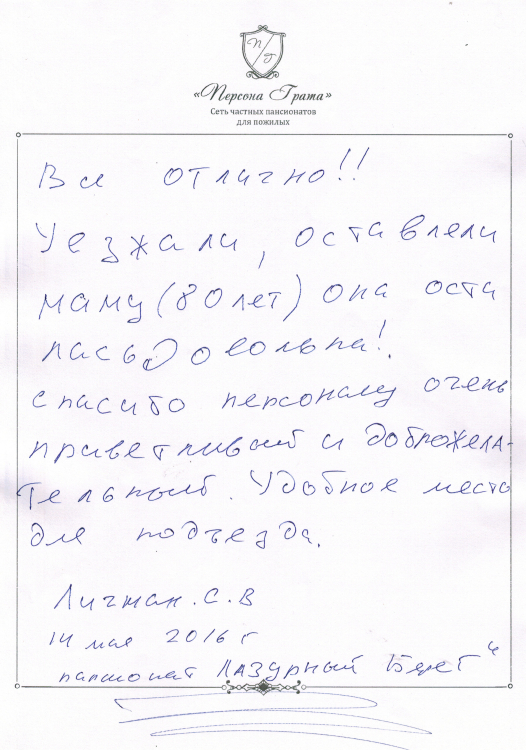 П Г
«Персона Грата»
Сеть частных пансионатов
для пожилых
Все отлично!!
Уезжали, оставляли
маму (80 лет) она оста
лась довольна!
спасибо персоналу очень
приветливый и доброжела-
тельный. Удобное место
для подъезда.
Лигман. С. В
14 мая 2016 г
пансионат Лазурный Берег"